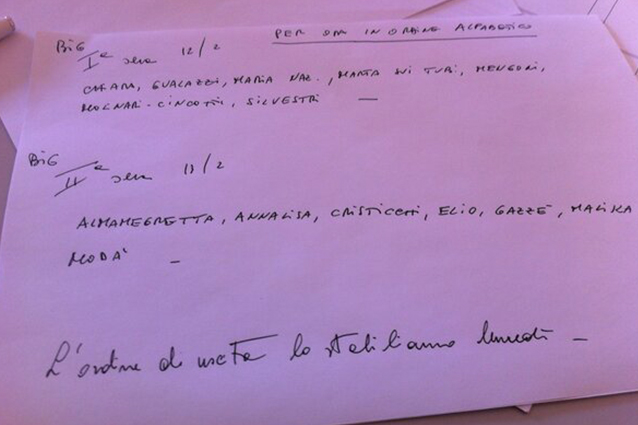 PER ORA IN ORDINE ALFABETICO
BIG
Iª sera 12/2
CHIARA, GUALAZZI, MARIA NAZ., MARTA SUI TUBI, MENGONI,
MOLINARI-CINCOTTI, SILVESTRI —
BIG
IIª sera 13/2
ALMAMEGRETTA, ANNALISA, CRISTICCHI, ELIO, GAZZÈ, MALIKA
MODÀ —
L'ordine di uscita lo stabiliamo lunedì —